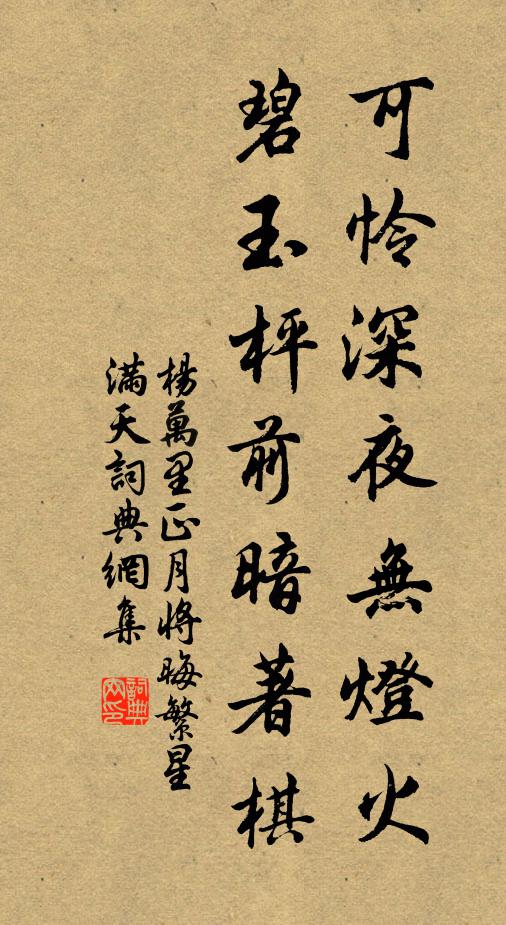 可怜深夜無燈火
碧玉枰前暗著棋
楊萬里正月將晦繁星
滿天詞典網集
詞典
网印